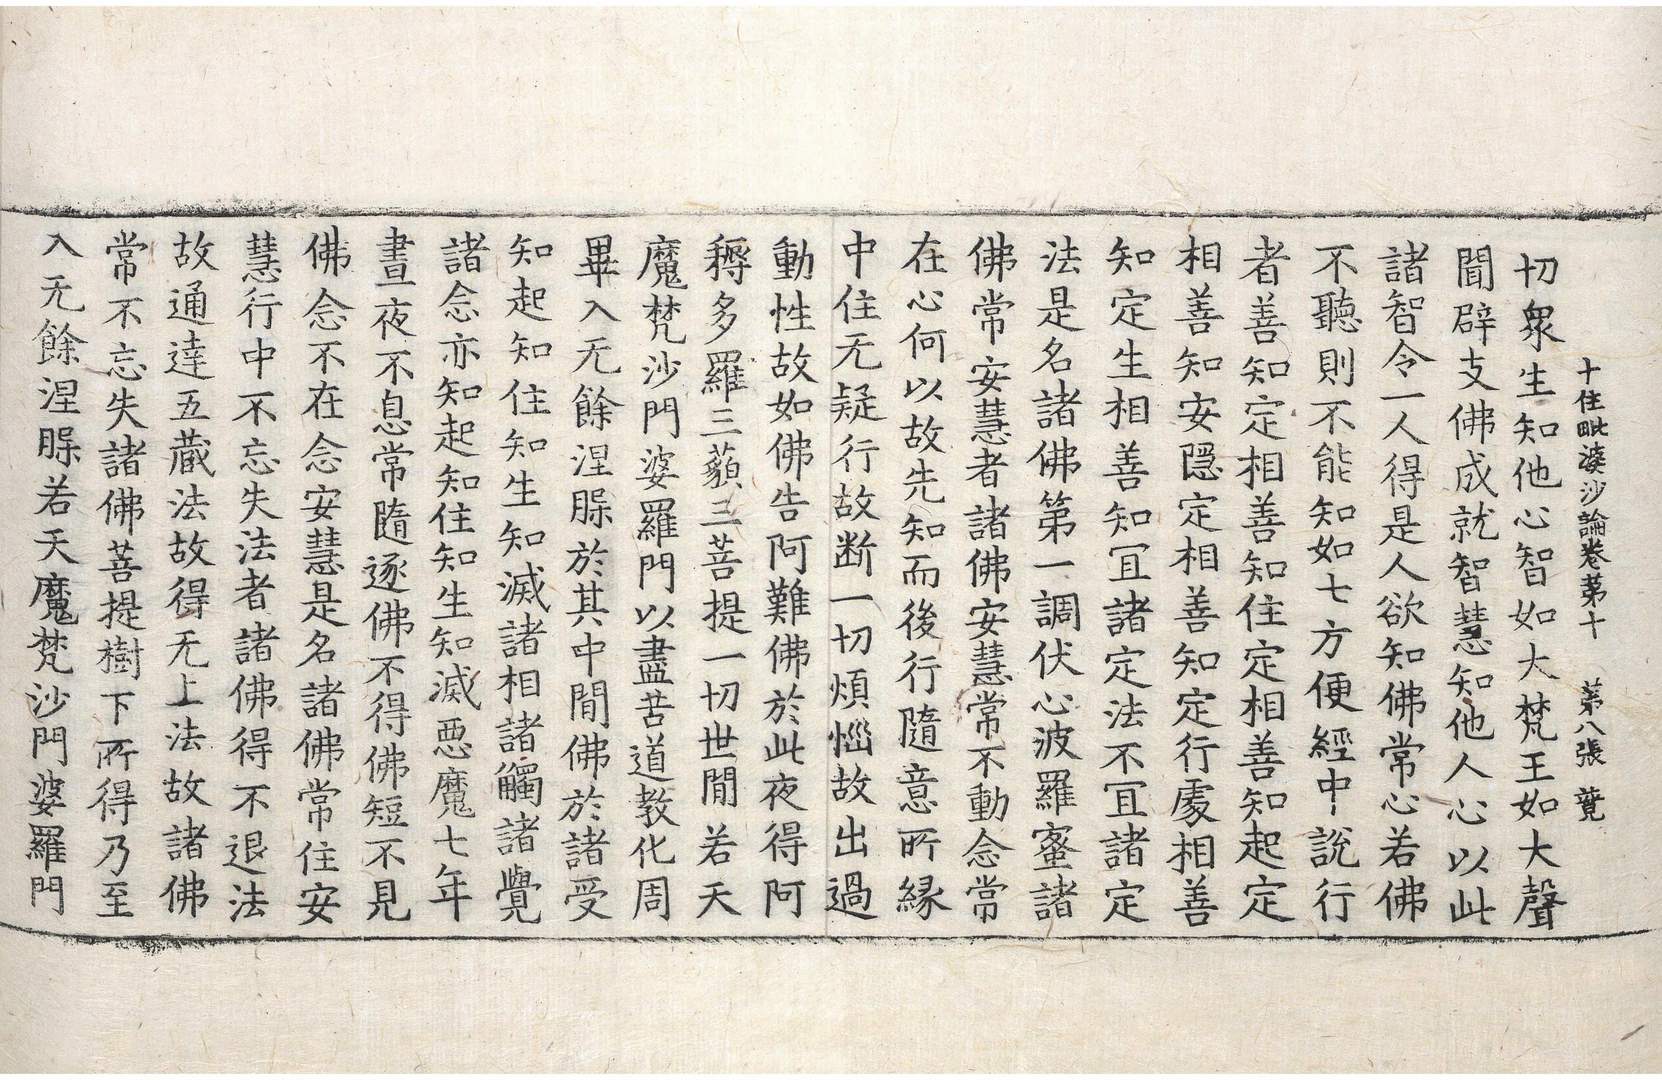 十住毗婆沙論卷苐十　苐八張　䕫
切衆生知他心智如大梵王如大聲
聞辟支佛成就智慧知他人心以此
諸智令一人得是人欲知佛常心若佛
不聽則不能知如七方便經中說行
者善知定相善知住定相善知起定
相善知安隱定相善知定行處相善
知定生相善知冝諸定法不冝諸定
法是名諸佛第一調伏心波羅蜜諸
佛常安慧者諸佛安慧常不動念常
在心何以故先知而後行隨意所緣
中住无疑行故断一切煩惱故出過
動性故如佛告阿難佛於此夜得阿
耨多羅三藐三菩提一切世間若天
魔梵沙門婆羅門以盡苦道教化周
畢入无餘涅槃於其中間佛於諸受
知起知住知生知滅諸相諸觸諸覺
諸念亦知起知住知生知滅惡魔七年
晝夜不息常隨逐佛不得佛短不見
佛念不在念安慧是名諸佛常住安
慧行中不忘失法者諸佛得不退法
故通達五藏法故得无上法故諸佛
常不忘失諸佛菩提樹下所得乃至
入无餘涅槃若天魔梵沙門婆羅門